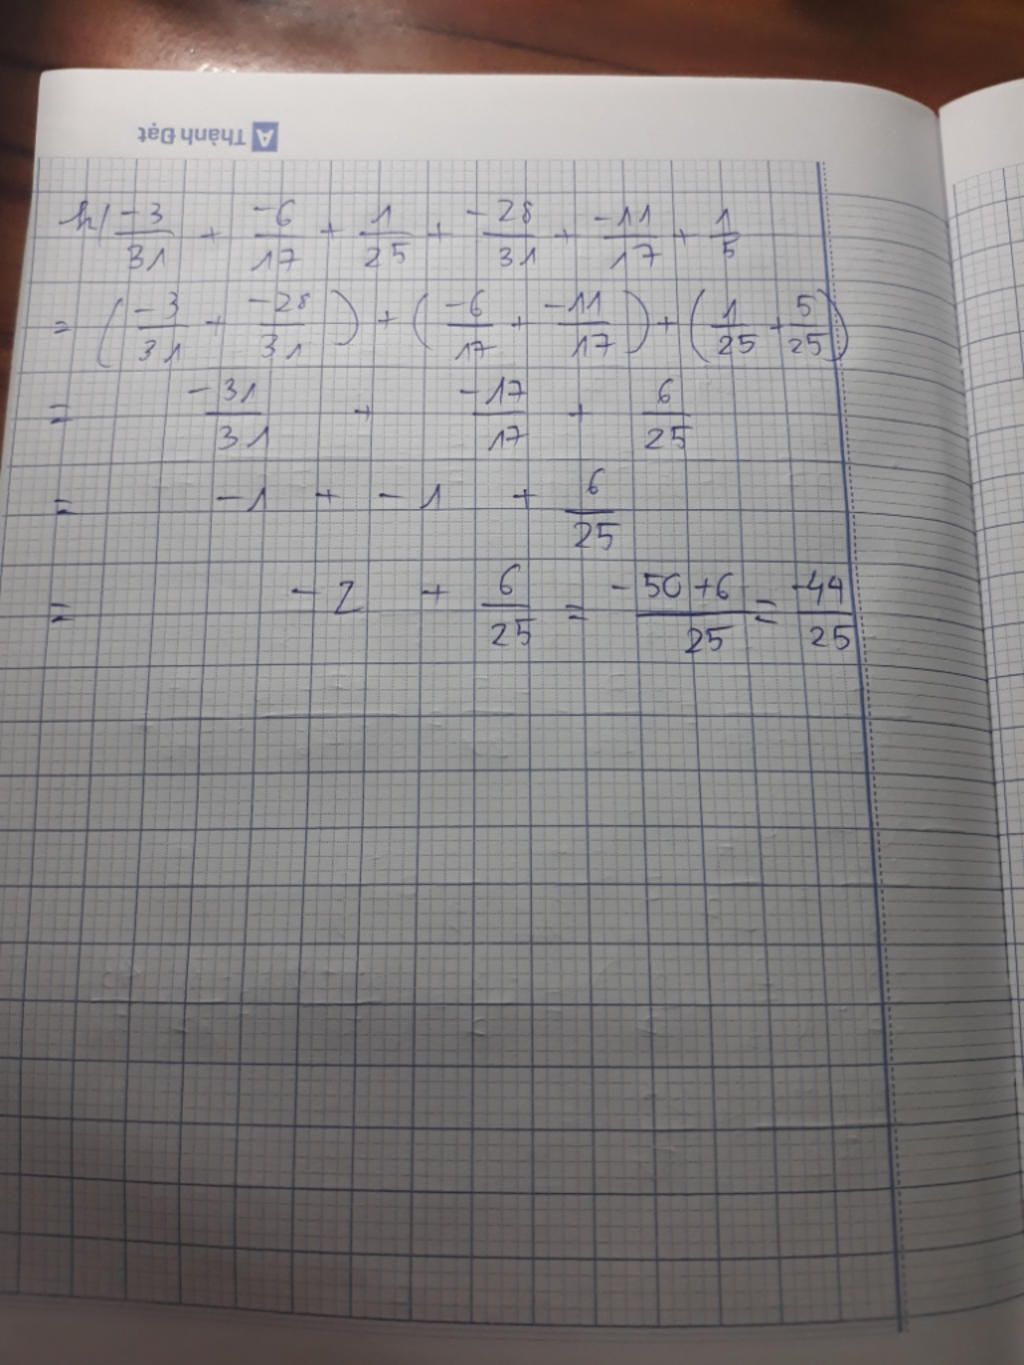 A Thành Đạt
h/ -3/31 + -6/17 + 1/25 + -28/31 + -11/17 + 1/5
= (-3/31 + -28/31) + (-6/17 + -11/17) + (1/25 + 5/25)
= -31/31 + -17/17 + 6/25
= -1 + -1 + 6/25
= -2 + 6/25 = -50+6/25 = -44/25